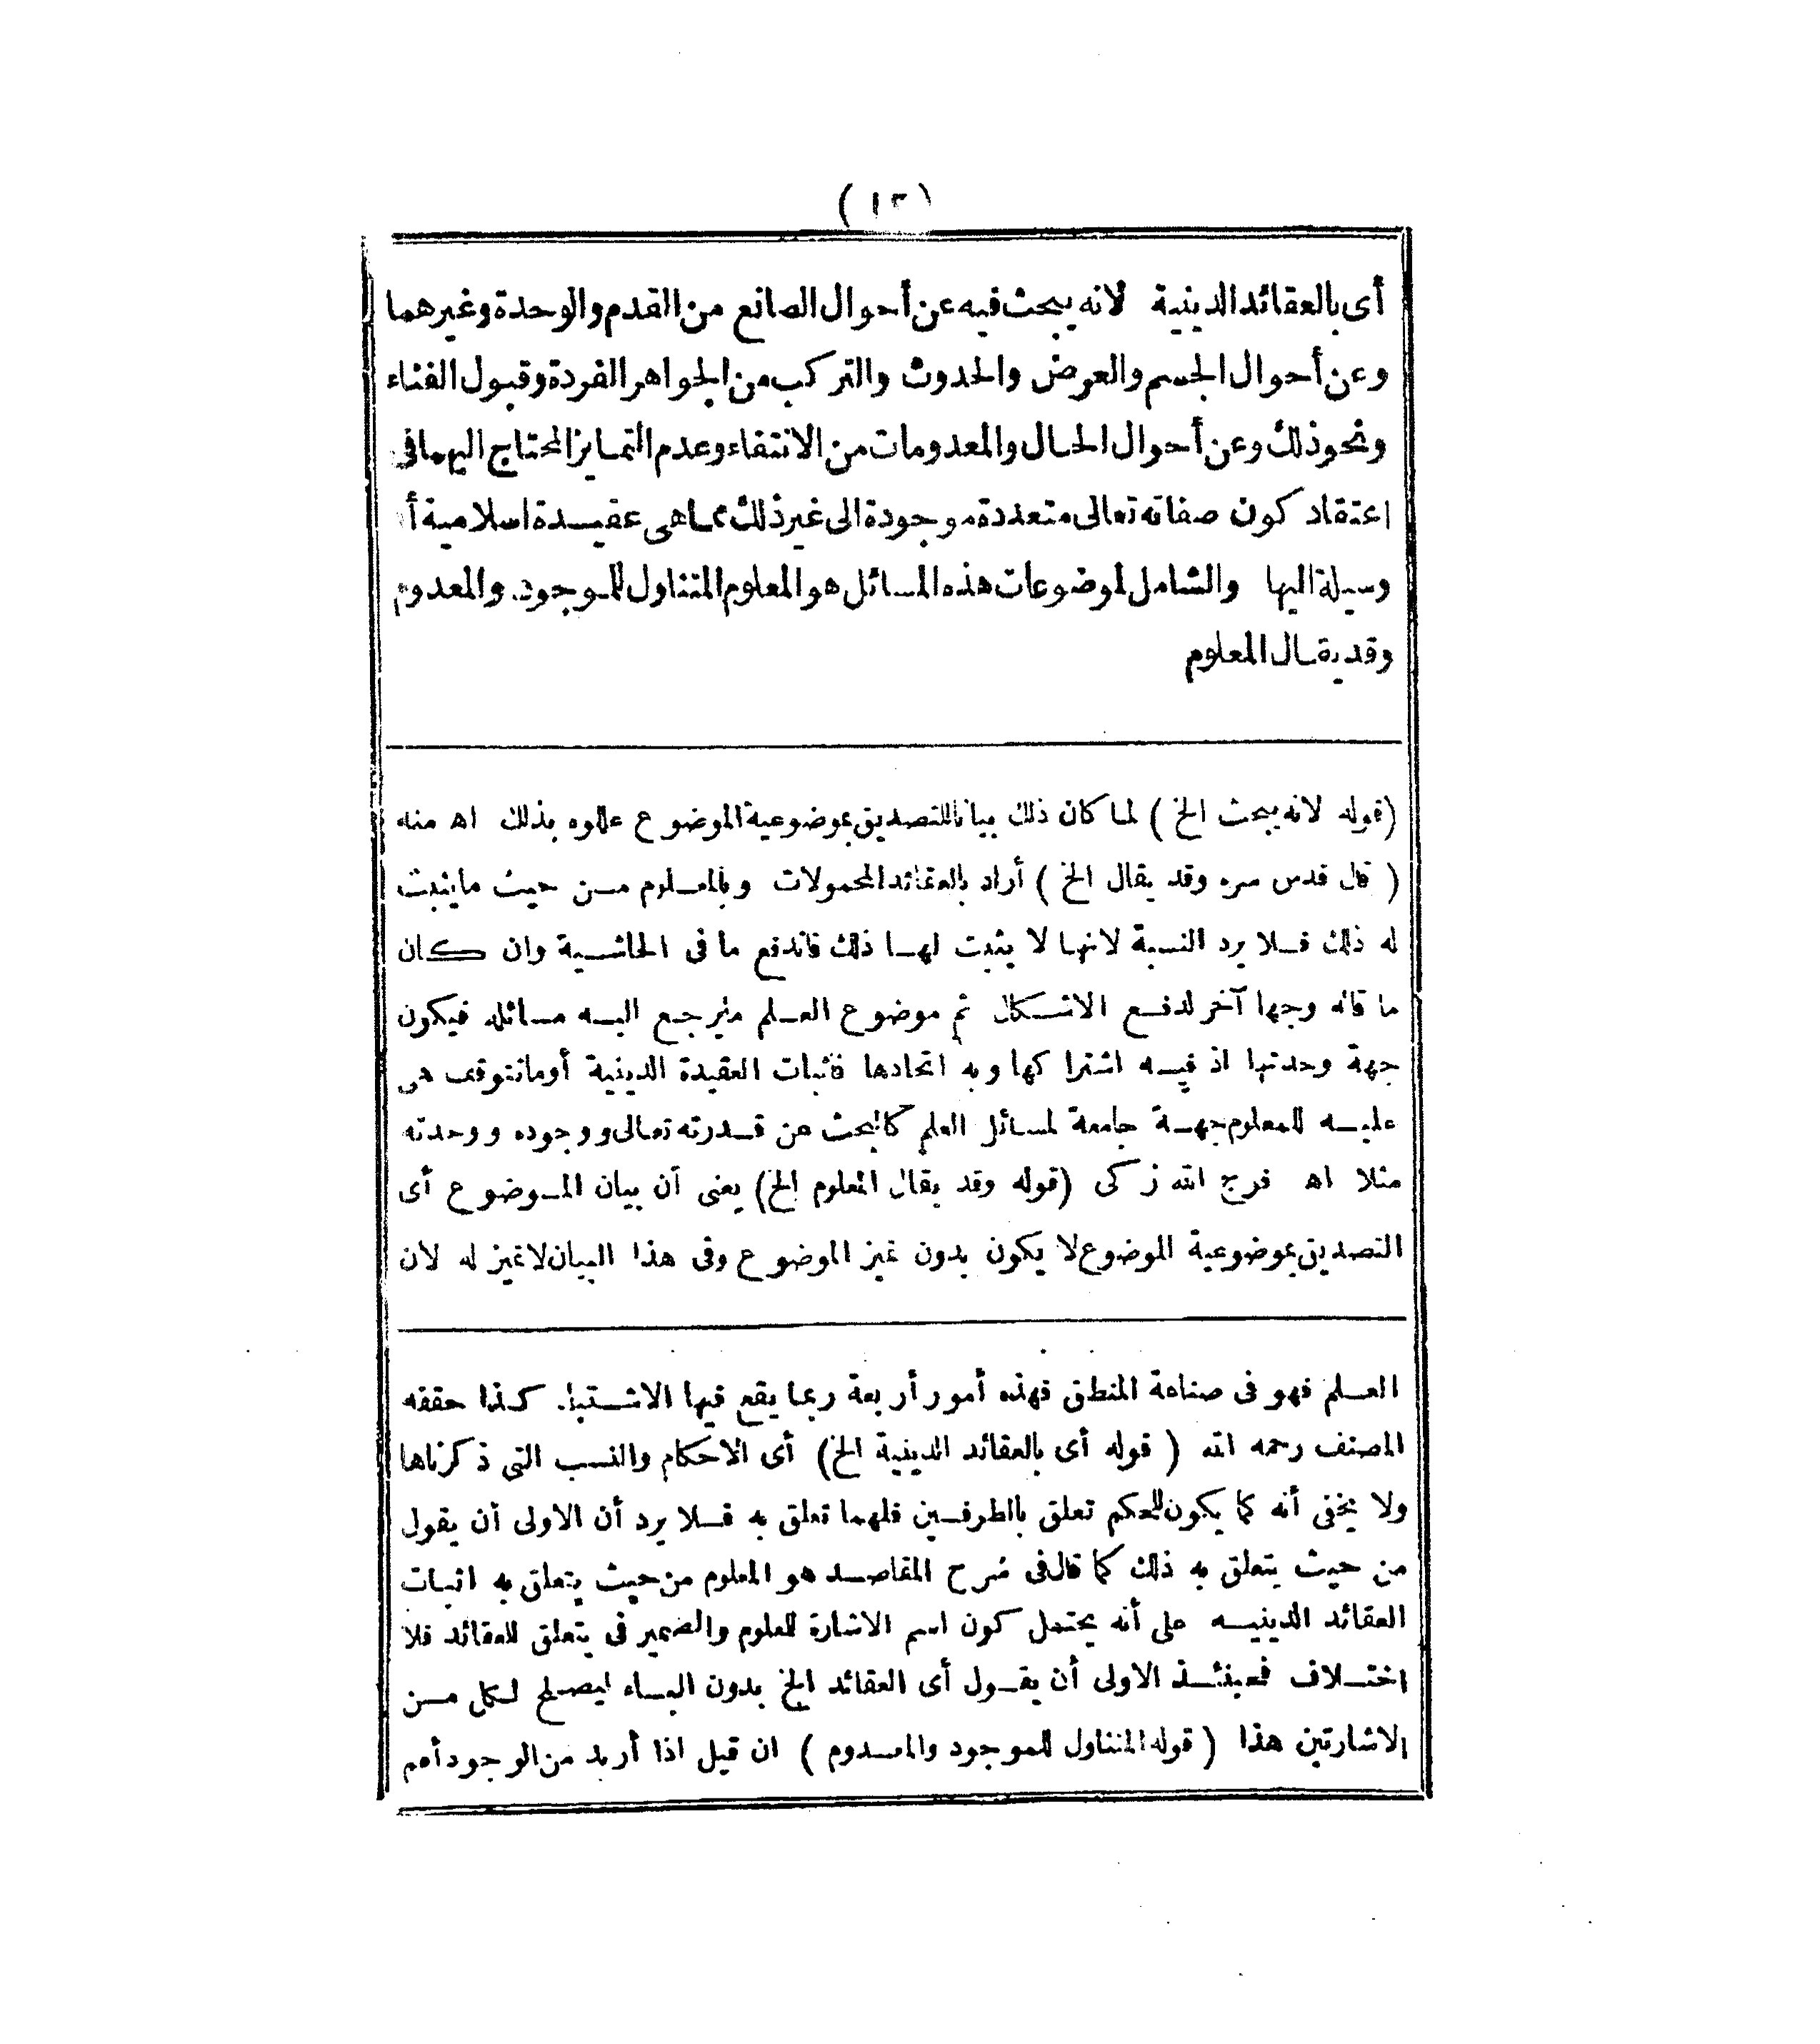 (١٣)
أى بالعقائد الدينية لانه يبحث فيه عن أحوال الصانع من القدم والوحدة وغيرهما
وعن أحوال الجسم والعرض والحدوث والتركب من الجواهر الفردة وقبول الفناء
ونحو ذلك وعن أحوال الحال والمعدومات من الانتفاء وعدم التمايز المحتاج اليهما فى
اعتقاد كون صفاته تعالى متعددة موجودة الى غير ذلك مما هى عقيدة اسلامية أو
وسيلة اليها والشامل لموضوعات هذه المسائل هو المعلوم المتناول للموجود والمعدوم
وقد يقال المعلوم
(قوله لانه يبحث الخ) لما كان ذلك بيانا للتصديق بموضوعية الموضوع عللوه بذلك اه منه
(قال قدس سره وقد يقال الخ) أراد بالعقائد المحمولات وبالمعلوم من حيث ما يثبت
له ذلك فلا يرد النسبة لانها لا يثبت لها ذلك فاندفع ما فى الحاشية وان كان
ما قاله وجها آخر لدفع الاشكال ثم موضوع العلم ما يرجع اليه مسائله فيكون
جهة وحدتها اذ فيه اشتراكها وبه اتحادها فاثبات العقيدة الدينية أو ما تتوقف هى
عليه للمعلوم جهة جامعة لمسائل العلم كالبحث عن قدرته تعالى ووجوده ووحدته
مثلا اه فرج الله زكى (قوله وقد يقال المعلوم الخ) يعنى أن بيان الموضوع أى
التصديق بموضوعية الموضوع لا يكون بدون تميز الموضوع وفى هذا البيان لا تميز له لان
العلم فهو فى صناعة المنطق فهذه أمور أربعة ربما يقع فيها الاشتباه كذا حققه
المصنف رحمه الله (قوله أى بالعقائد الدينية الخ) أى الاحكام والنسب التى ذكرناها
ولا يخفى أنه كما يكون للحكم تعلق بالطرفين فلهما تعلق به فلا يرد أن الاولى أن يقول
من حيث يتعلق به ذلك كما قال فى شرح المقاصد هو المعلوم من حيث يتعلق به اثبات
العقائد الدينيه على أنه يحتمل كون اسم الاشارة للعلوم والضمير فى يتعلق للعقائد فلا
اختلاف فحينئذ الاولى أن يقول أى العقائد الخ بدون الباء ليصلح لكل من
الاشارتين هذا (قوله المتناول للموجود والمعدوم) ان قيل اذا أريد من الوجود أعم